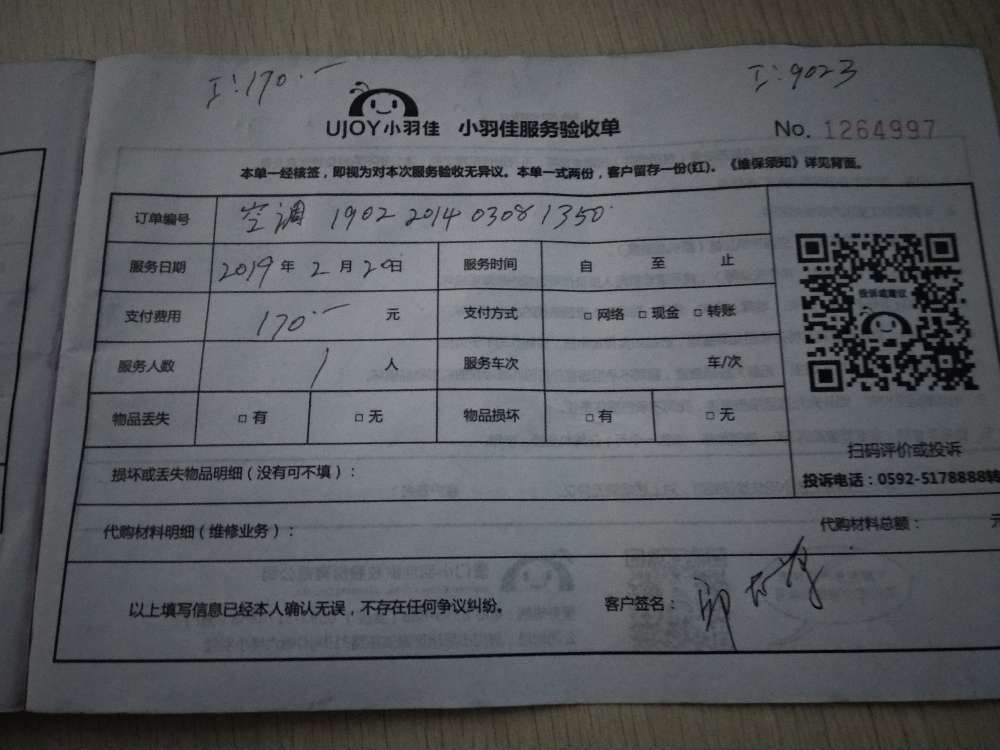 工:170.一
工:9023
UJOY小羽佳 小羽佳服务验收单
No. 1264997
本单一经核签，即视为对本次服务验收无异议。本单一式两份，客户留存一份(红)。《维保须知》详见背面。
订单编号 空调 1902 2014 0308 1350
服务日期 2019年2月20日 服务时间 自 至 止
支付费用 170.一 元 支付方式 □网络 □现金 □转账
服务人数 1 人 服务车次 车/次
物品丢失 □有 □无 物品损坏 □有 □无
投诉或建议
扫码评价或投诉
投诉电话：0592-5178888转
损坏或丢失物品明细（没有可不填）：
代购材料明细（维修业务）： 代购材料总额：
以上填写信息已经本人确认无误，不存在任何争议纠纷。 客户签名：